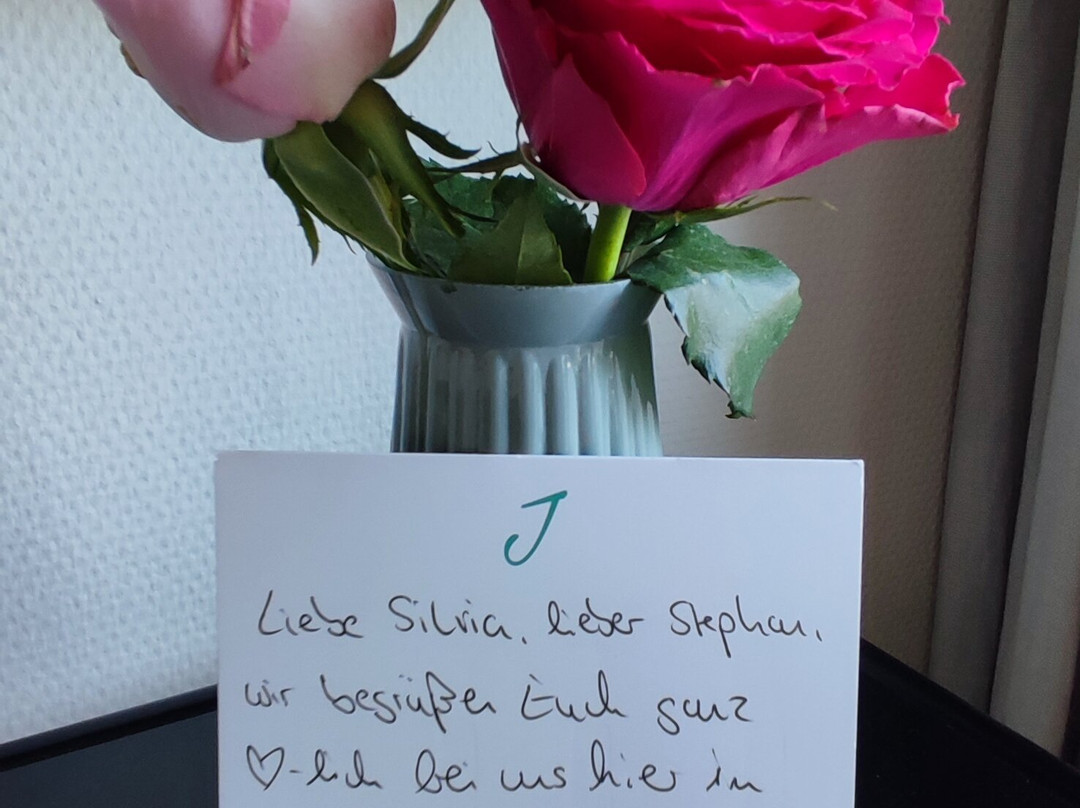 J
Liebe Silvia, lieber Stephan,
wir begrüßen Euch ganz
♡-lich bei uns hier in